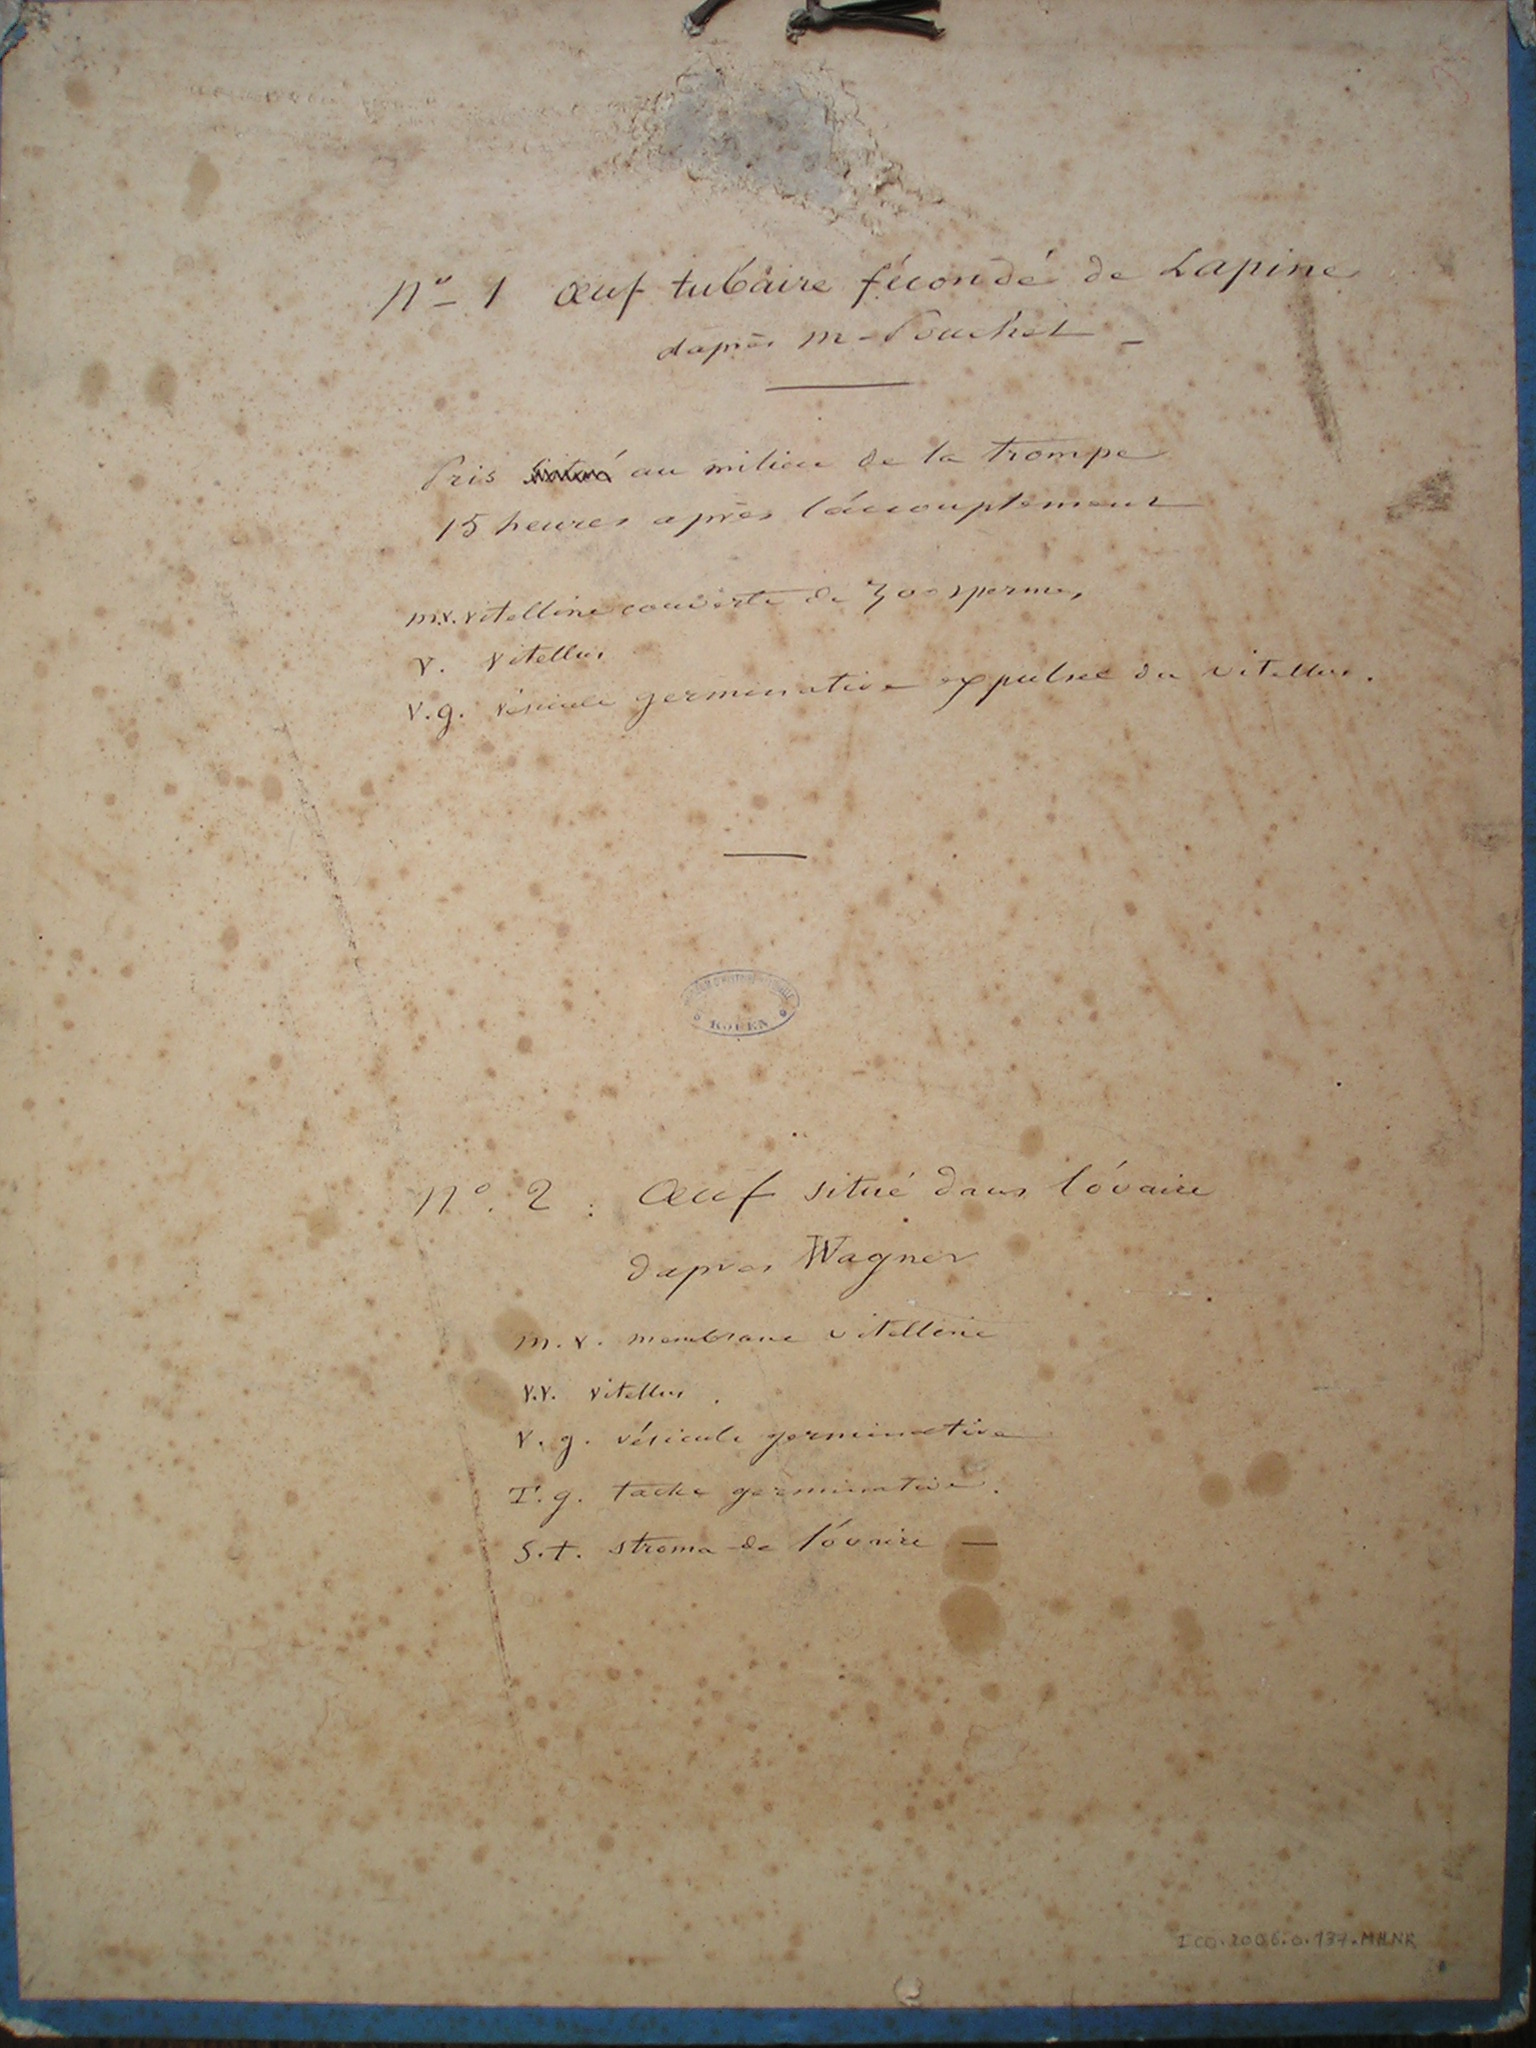 No 1 œuf tubaire fécondé de Lapine
d'après M. Pouchet _
Pris au milieu de la trompe
15 heures après l'accouplement
m.v. vitelline couverte de zoosperme,
v. vitellus
v.g. vésicule germinative expulsée du vitellus.
MUSÉUM D'HISTOIRE NATURELLE
ROUEN
No. 2 : Œuf situé dans l'óvaire
d'après Wagner
m.v. membrane vitelline
v.v. vitellus .
v.g. vésicule germinative
T.g. tache germinative.
S.t. stroma de l'óvaire —
ICO.2006.0.137.MHNR